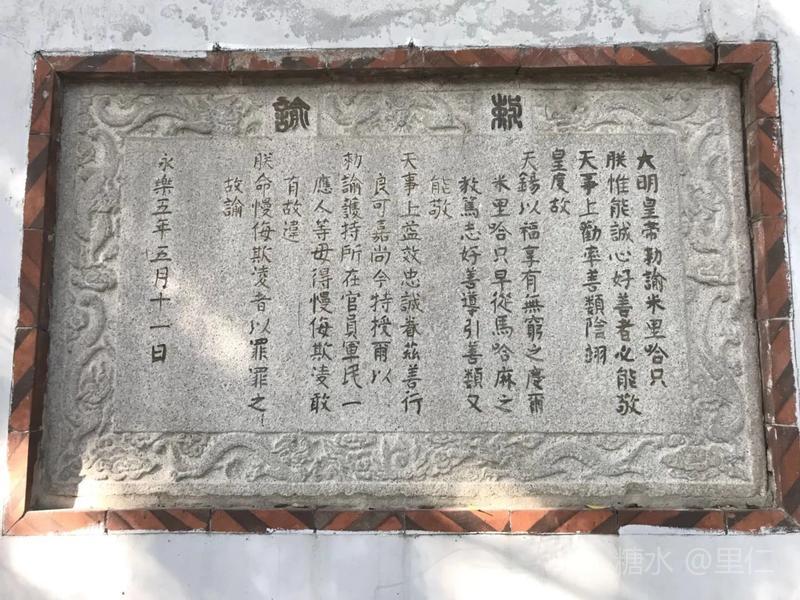 敕諭
大明皇帝勅諭米里哈只
朕惟能誠心好善者必能敬
天事上勸率善類陰翊
皇度故
天錫以福享有無窮之慶爾
米里哈只早從馬哈麻之
教篤志好善導引善類又
能敬
天事上益效忠誠眷茲善行
良可嘉尚今特授爾以
勅諭護持所在官員軍民一
應人等毋得慢侮欺凌敢
有故違
朕命慢侮欺凌者以罪罪之
故諭
永樂五年五月十一日
糖水 @里仁